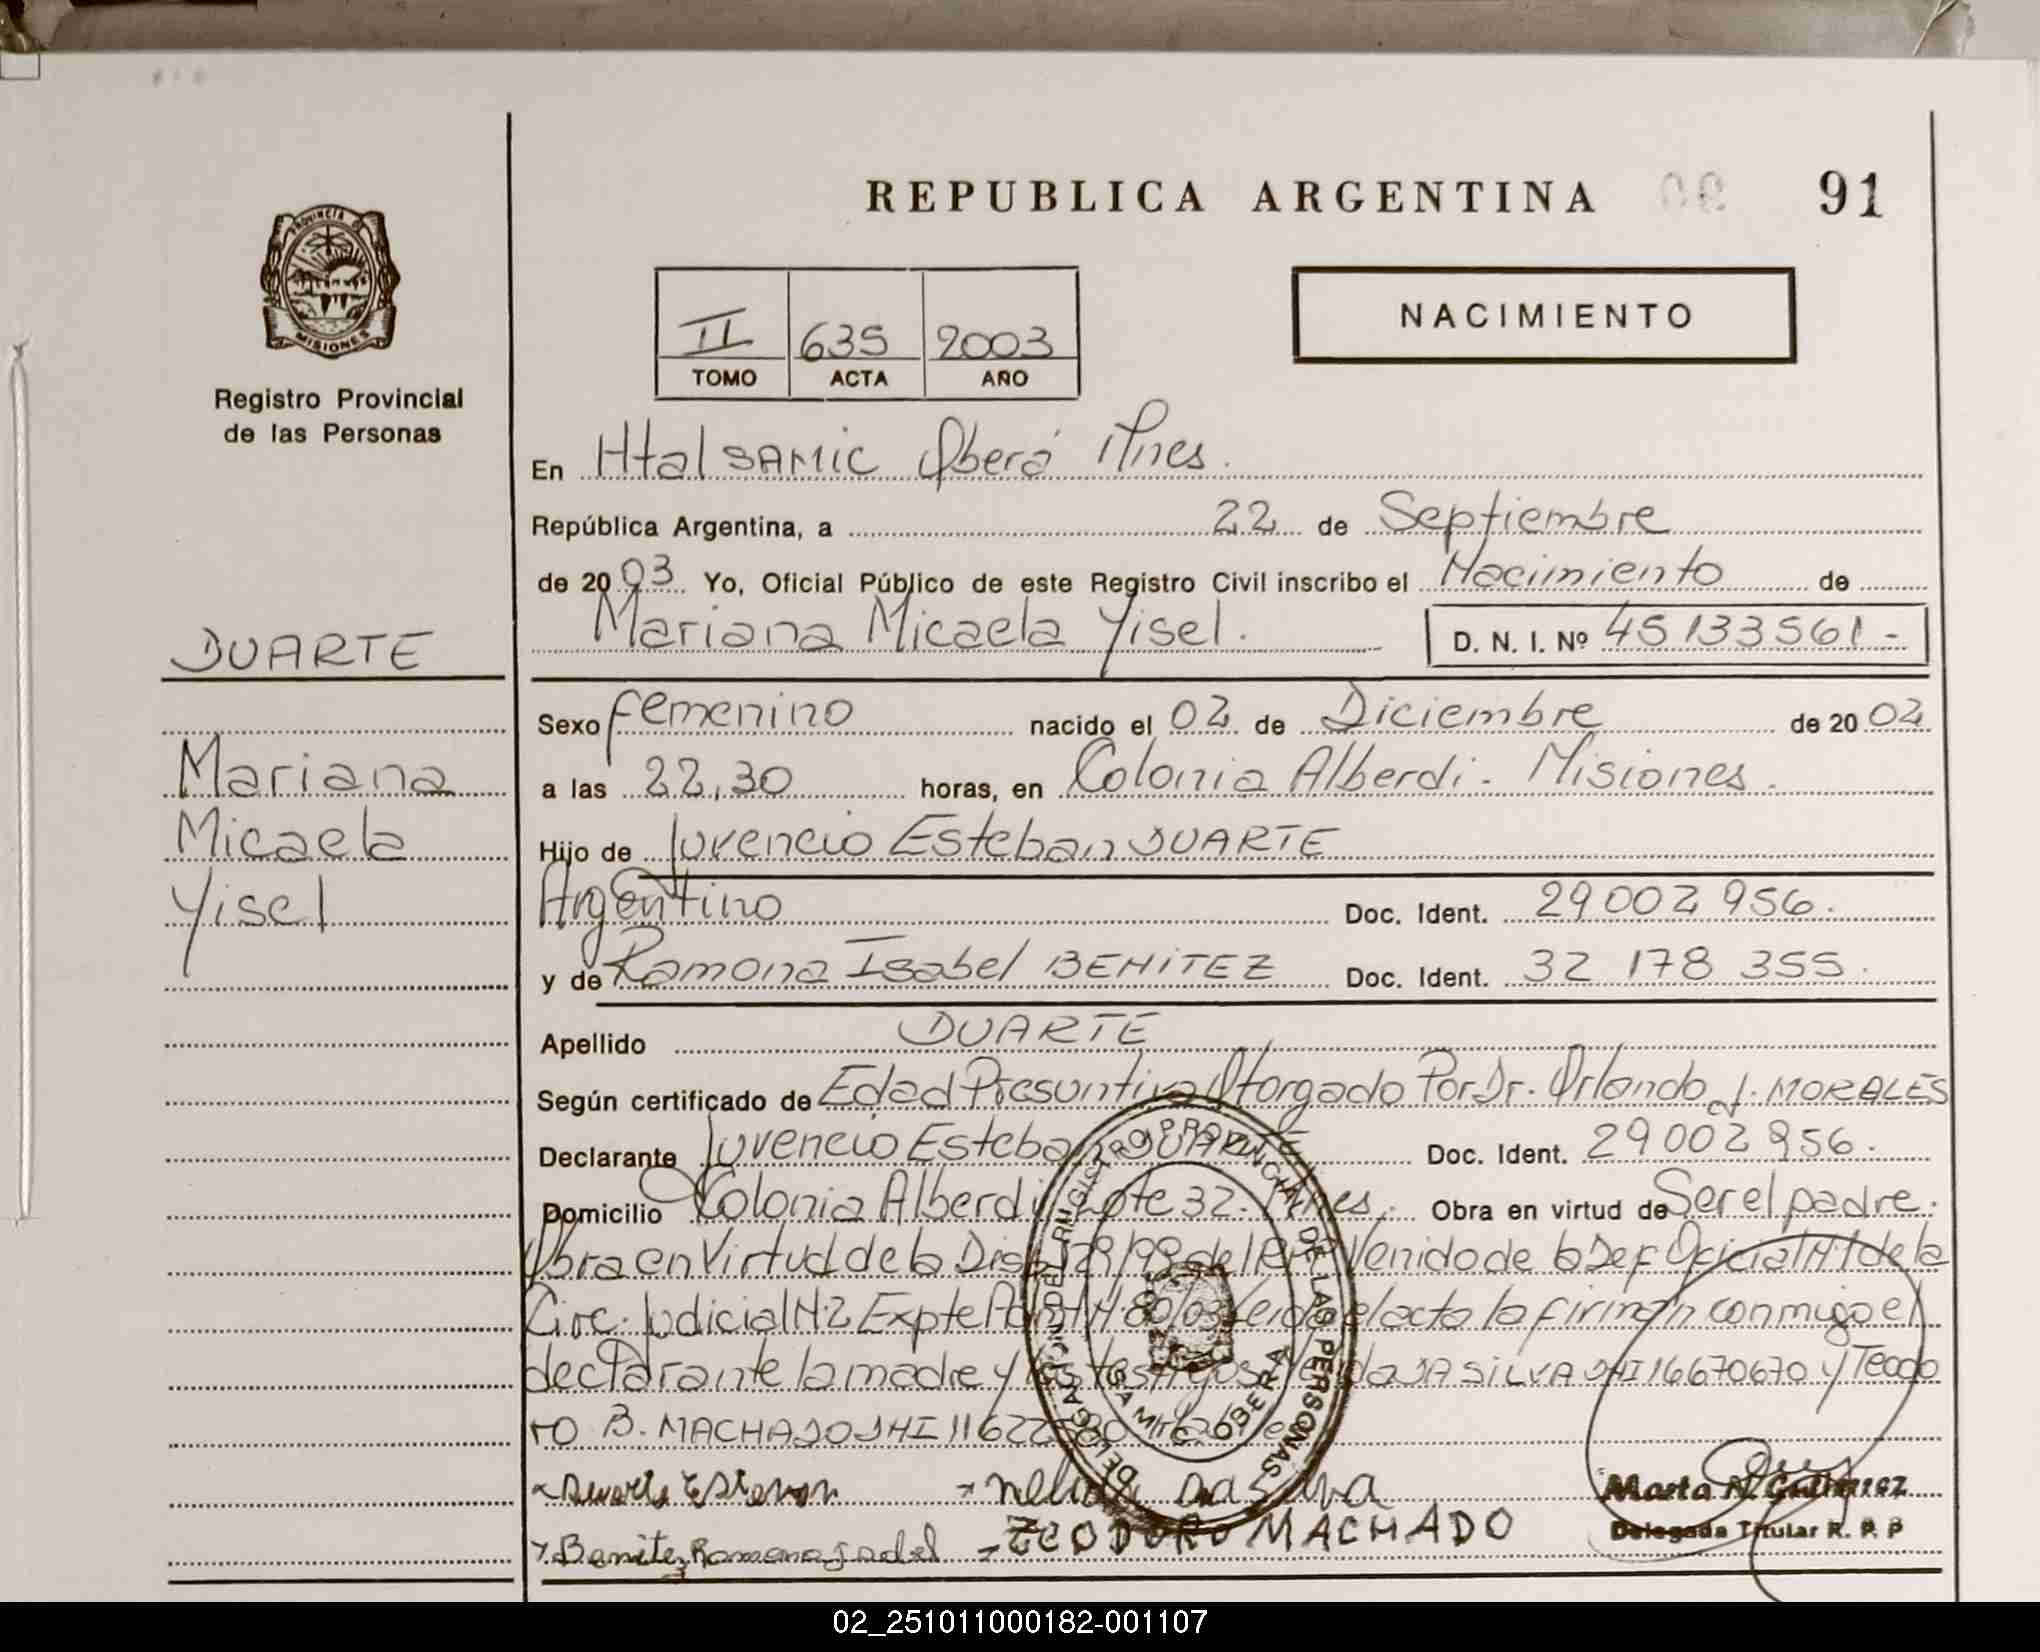 REPUBLICA ARGENTINA 91
PROVINCIA DE
MISIONES
Registro Provincial
de las Personas
II 635 2003
TOMO ACTA AÑO
NACIMIENTO
En Htal SAMIC Oberá Mnes.
República Argentina, a 22 de Septiembre
de 2003 Yo, Oficial Público de este Registro Civil inscribo el Nacimiento de
Mariana Micaela Yisel. D. N. I. Nº 45133561-
DUARTE
Mariana
Micaela
Yisel
Sexo femenino nacido el 02 de Diciembre de 2002
a las 22,30 horas, en Colonia Alberdi - Misiones.
Hijo de Juvencio Esteban DUARTE
Argentino Doc. Ident. 29 002 956.
y de Ramona Isabel BENITEZ Doc. Ident. 32 178 355.
Apellido DUARTE
Según certificado de Edad Presuntiva Otorgado Por Dr. Orlando J. MORALES
Declarante Juvencio Esteban DUARTE Doc. Ident. 29 002 956.
Domicilio Colonia Alberdi Lote 32. Mnes. Obra en virtud de Ser el padre.
Obra en Virtud de la Disp 129/99 del Venido de la Def Oficial N.1 de la
Circ. Judicial N.2 Expte N. 80/03 Leida el acta la firman conmigo el
declarante la madre y los testigos DA SILVA DNI 16670670 y Teodo
ro B. MACHADO DNI 11622
Duarte Esteban
Nelida Da Silva
Benitez Ramona Isabel
TEODORO MACHADO
Marta N. Gutierrez
Delegada Titular R. P. P
DELEGACION DEL REGISTRO PROVINCIAL DE LAS PERSONAS
SAMIC OBERA
02_251011000182-001107